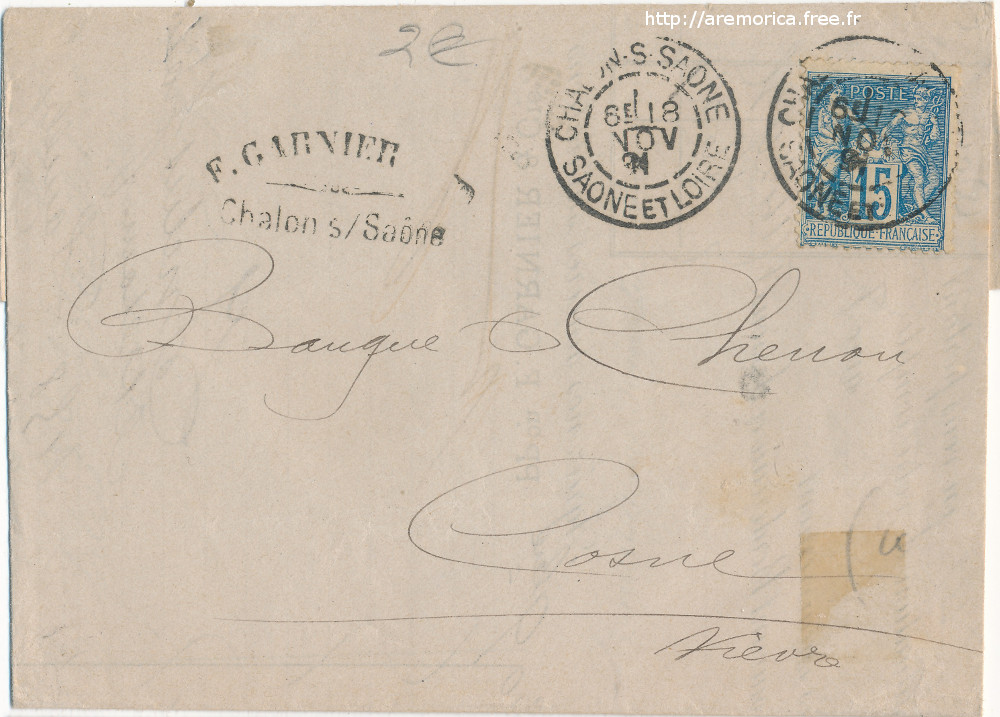 http://aremorica.free.fr
2€
F. GARNIER
Chalon s/Saône
CHALON-S-SAONE
6E 18
NOV
91
SAONE ET LOIRE
POSTE
15
REPUBLIQUE FRANCAISE
Banque Chenon
Cosne
Nièvre